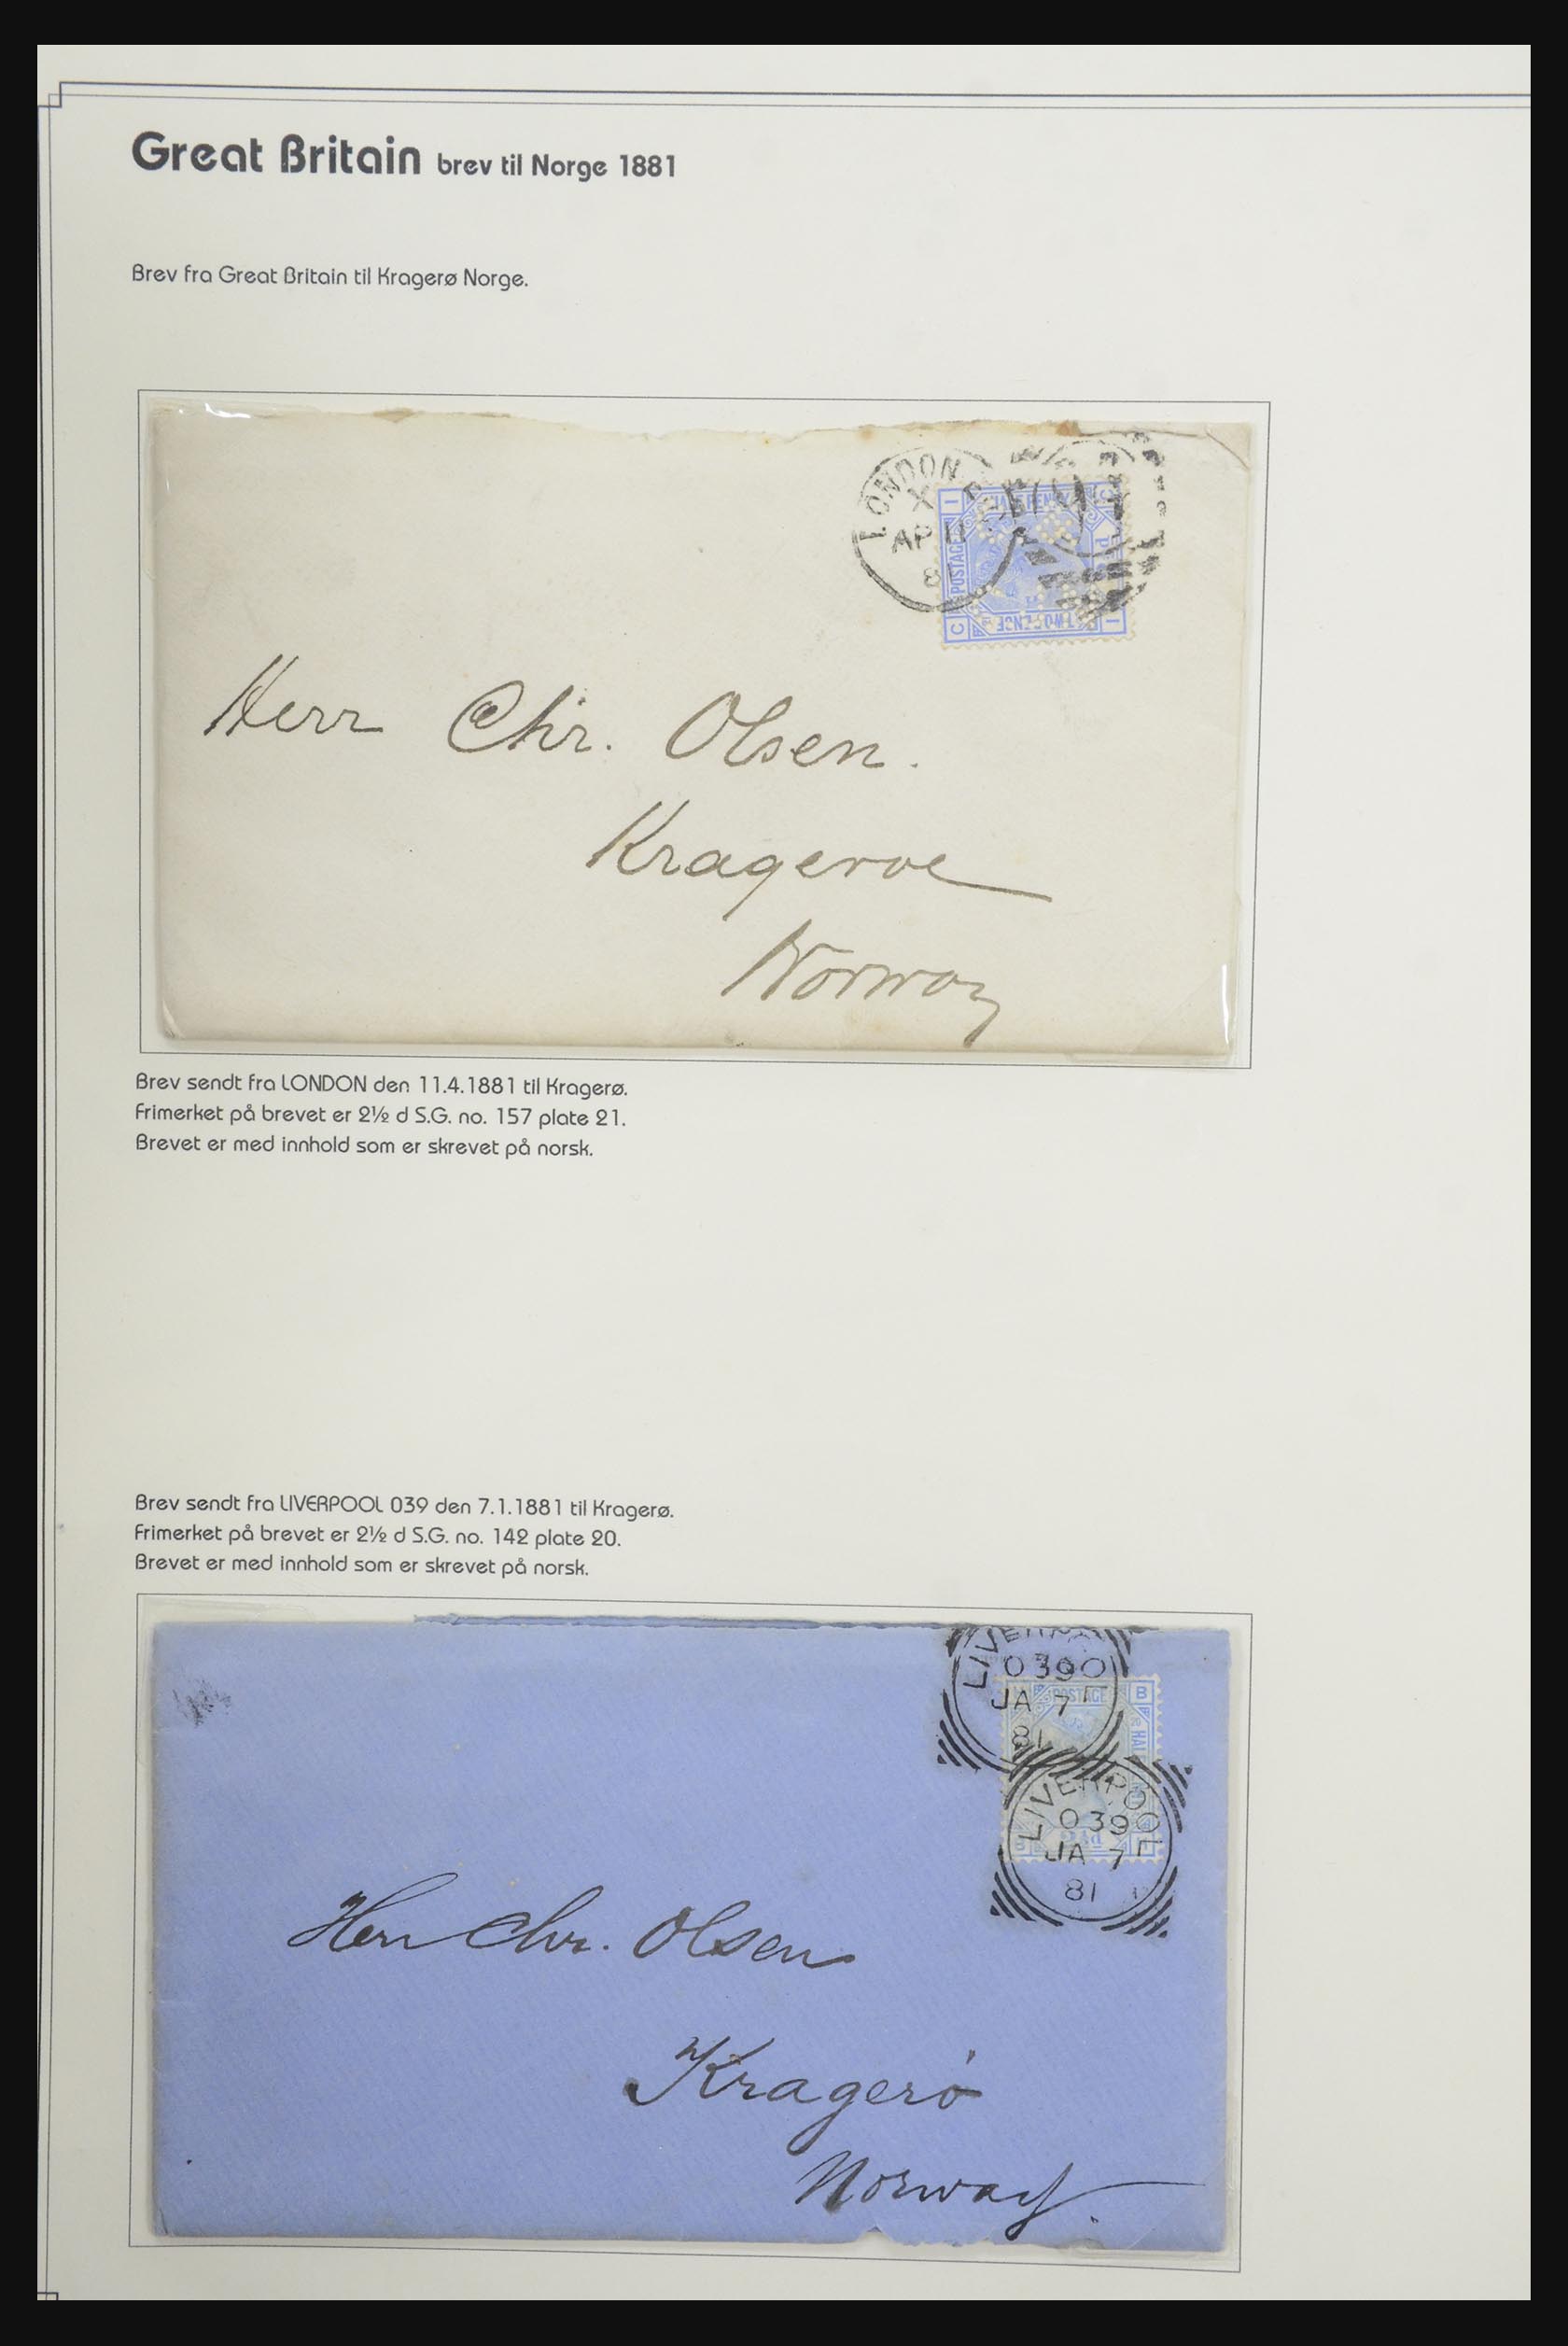 Great Britain brev til Norge 1881
Brev fra Great Britain til Kragerø Norge.
LONDON
X
AP 11
81
C I
POSTAGE
TWOPENCE
Herr Chr. Olsen.
Krageroe
Norway
Brev sendt fra LONDON den 11.4.1881 til Kragerø.
Frimerket på brevet er 2½ d S.G. no. 157 plate 21.
Brevet er med innhold som er skrevet på norsk.
Brev sendt fra LIVERPOOL 039 den 7.1.1881 til Kragerø.
Frimerket på brevet er 2½ d S.G. no. 142 plate 20.
Brevet er med innhold som er skrevet på norsk.
039
JA 7
81
POSTAGE B
LIVERPOOL
039
JA 7
81
Herr Chr. Olsen
Kragerö
Norway.